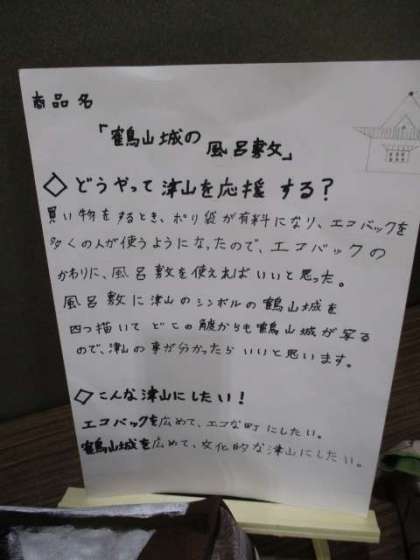 商品名
「鶴山城の風呂敷」
◇どうやって津山を応援する?
買い物をするとき、ポリ袋が有料になり、エコバックを
多くの人が使うようになったので、エコバックの
かわりに、風呂敷を使えればいいと思った。
風呂敷に津山のシンボルの鶴山城を
四つ描いてどこの角度からも鶴山城が写る
ので、津山の事が分かったらいいと思います。
◇こんな津山にしたい!
エコバックを広めて、エコな町にしたい。
鶴山城を広めて、文化的な津山にしたい。